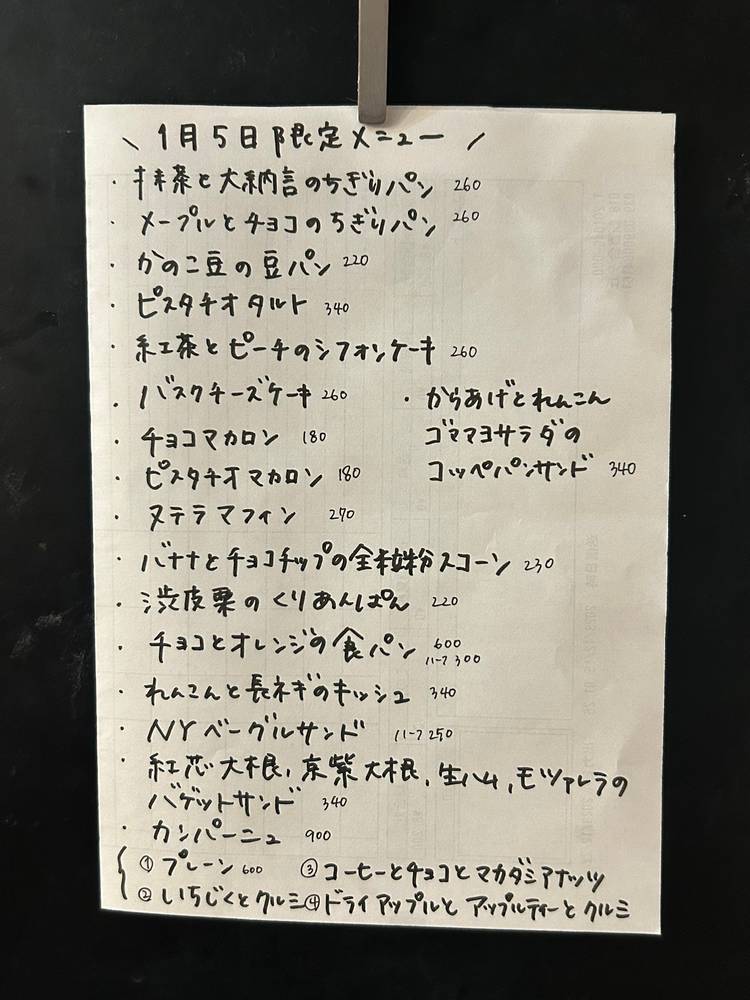 ＼ 1月5日限定メニュー ／
・抹茶と大納言のちぎりパン 260
・メープルとチョコのちぎりパン 260
・かのこ豆の豆パン 220
・ピスタチオタルト 340
・紅茶とピーチのシフォンケーキ 260
・バスクチーズケーキ 260
・チョコマカロン 180
・ピスタチオマカロン 180
・からあげとれんこん
ゴママヨサラダの
コッペパンサンド 340
・ヌテラマフィン 270
・バナナとチョコチップの全粒粉スコーン 230
・渋皮栗のくりあんぱん 220
・チョコとオレンジの食パン 600
ハーフ 300
・れんこんと長ネギのキッシュ 340
・NYベーグルサンド ハーフ 250
・紅芯大根,京紫大根,生ハム,モツァレラの
バゲットサンド 340
・カンパーニュ 900
①プレーン 600 ③コーヒーとチョコとマカダミアナッツ
②いちじくとクルミ ④ドライアップルとアップルティーとクルミ